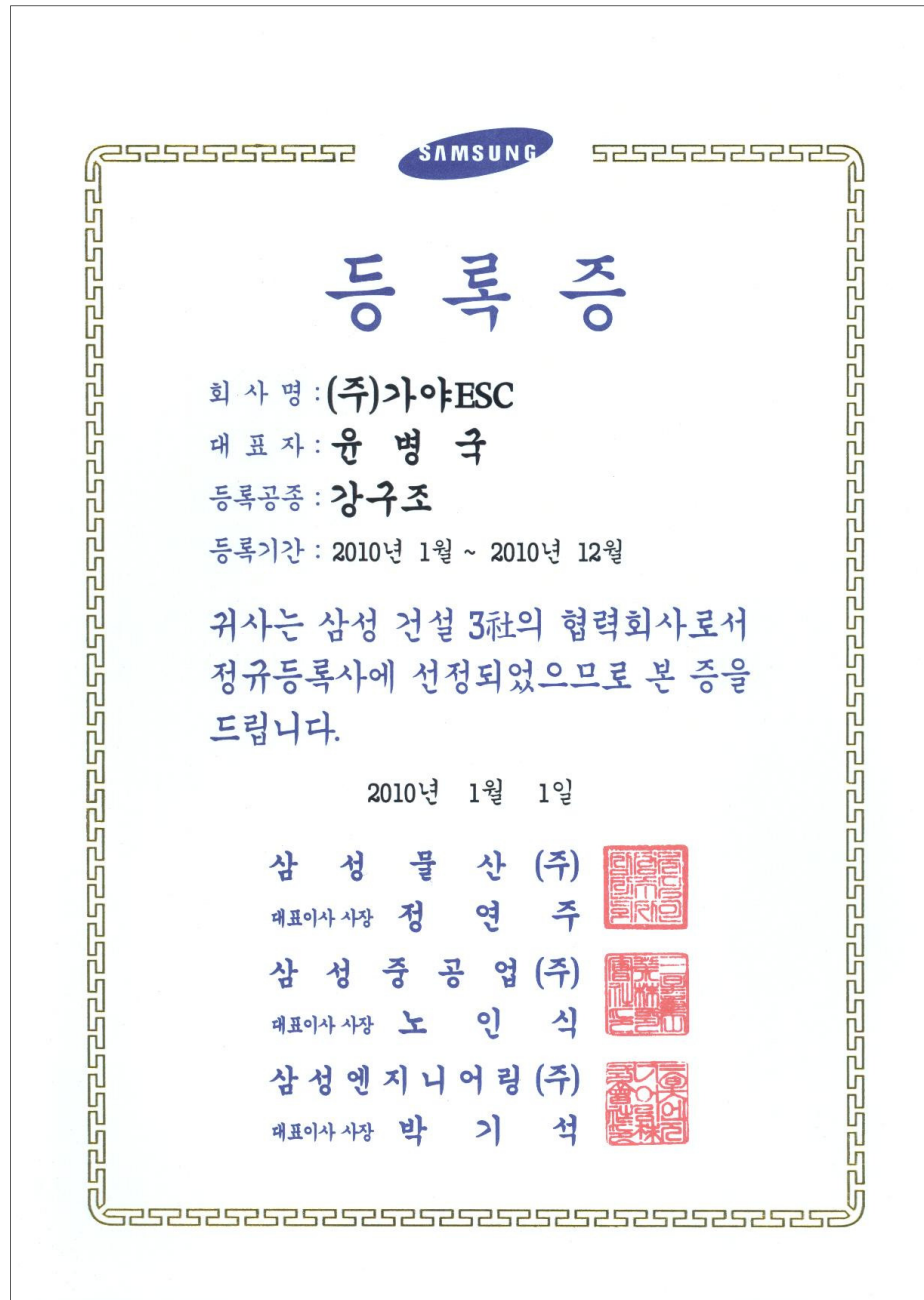 SAMSUNG
등 록 증
회 사 명 : (주)가야ESC
대 표 자 : 윤 병 국
등록공종 : 강구조
등록기간 : 2010년 1월 ~ 2010년 12월
귀사는 삼성 건설 3社의 협력회사로서
정규등록사에 선정되었으므로 본 증을
드립니다.
2010년 1월 1일
삼 성 물 산 (주)
대표이사 사장 정 연 주
삼 성 중 공 업 (주)
대표이사 사장 노 인 식
삼 성 엔 지 니 어 링 (주)
대표이사 사장 박 기 석